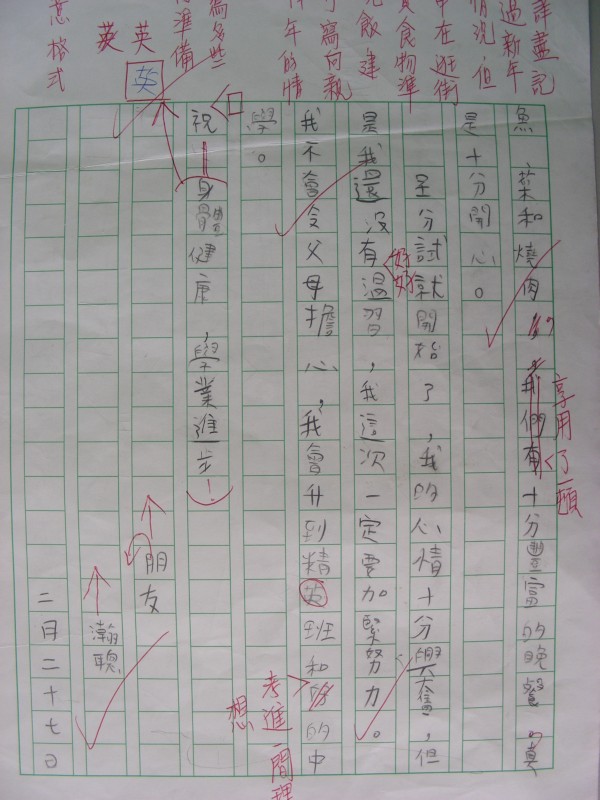 詳盡記
過新年
情況但
在逛街
食物準
飲建
寫向親
年的情
為多些
準備
英
英
英
意格式
魚、菜和燒肉,我們有十分豐富的晚餐,真
享用了一頓
是十分開心。
呈分試就開始了,我的心情十分興奮,但
是我還沒有溫習,我這次一定要加緊努力。
好好
我不會令父母擔心,我會升到精英班和的中
考進一間理
想
學。
祝
身體健康,學業進步!
朋友
瀚聰
二月二十七日